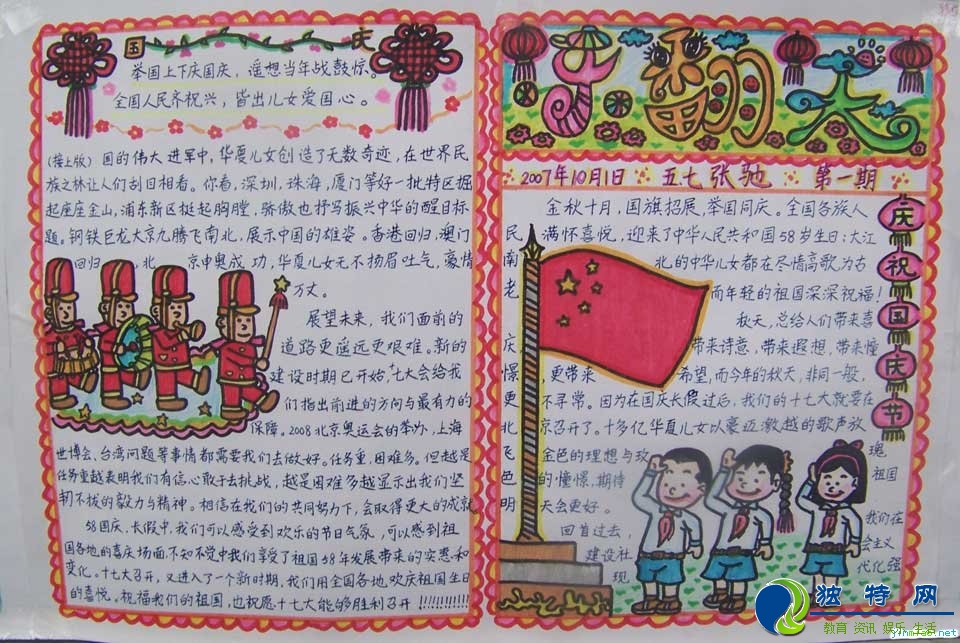 国 庆
举国上下庆国庆，遥想当年战鼓惊。
全国人民齐祝兴，皆出儿女爱国心。
(接上版) 国的伟大进军中，华夏儿女创造了无数奇迹，在世界民
族之林让人们刮目相看。你看，深圳，珠海，厦门等好一批特区掘
起座座金山，浦东新区挺起胸膛，骄傲也抒写振兴中华的醒目标
题。钢铁巨龙大京九腾飞南北，展示中国的雄姿。香港回归，澳门
回归，北京申奥成功，华夏儿女无不扬眉吐气，豪情
万丈。
展望未来，我们面前的
道路更遥远更艰难。新的
建设时期已开始，十七大会给我
们指出前进的方向与最有力的
保障。2008北京奥运会的举办，上海
世博会、台湾问题等事情都需要我们去做好。任务重，困难多。但越是
任务重越表明我们有信心敢于去挑战，越是困难多越显示出我们坚
韧不拔的毅力与精神。相信在我们的共同努力下，会取得更大的成就
58国庆，长假中，我们可以感受到欢乐的节日气氛，可以感到祖
国各地的喜庆场面，不知不觉中我们享受了祖国58年发展带来的实惠和
变化。十七大召开，又进入了一个新时期，我们用全国各地欢庆祖国生日
的喜悦。祝福我们的祖国，也祝愿十七大能够胜利召开!!!!!!!!!!!
乐翻天
2007年10月1日 五.七张驰 第一期
庆祝国庆节
金秋十月，国旗招展，举国同庆。全国各族人
民，满怀喜悦，迎来了中华人民共和国58岁生日：大江
南北的中华儿女都在尽情高歌，为古
老而年轻的祖国深深祝福！
秋天，总给人们带来喜
庆，带来诗意，带来遐想，带来憧
憬，更带来希望，而今年的秋天，非同一般，
更不寻常。因为在国庆长假过后，我们的十七大就要在
北京召开了。十多亿华夏儿女以豪迈激越的歌声放
飞金色的理想与玫瑰
色的憧憬，期待祖国
明天会更好。
回首过去，我们在
建设社会主义
现代化强
独特网
教育 资讯 娱乐 生活
yinmiao.net